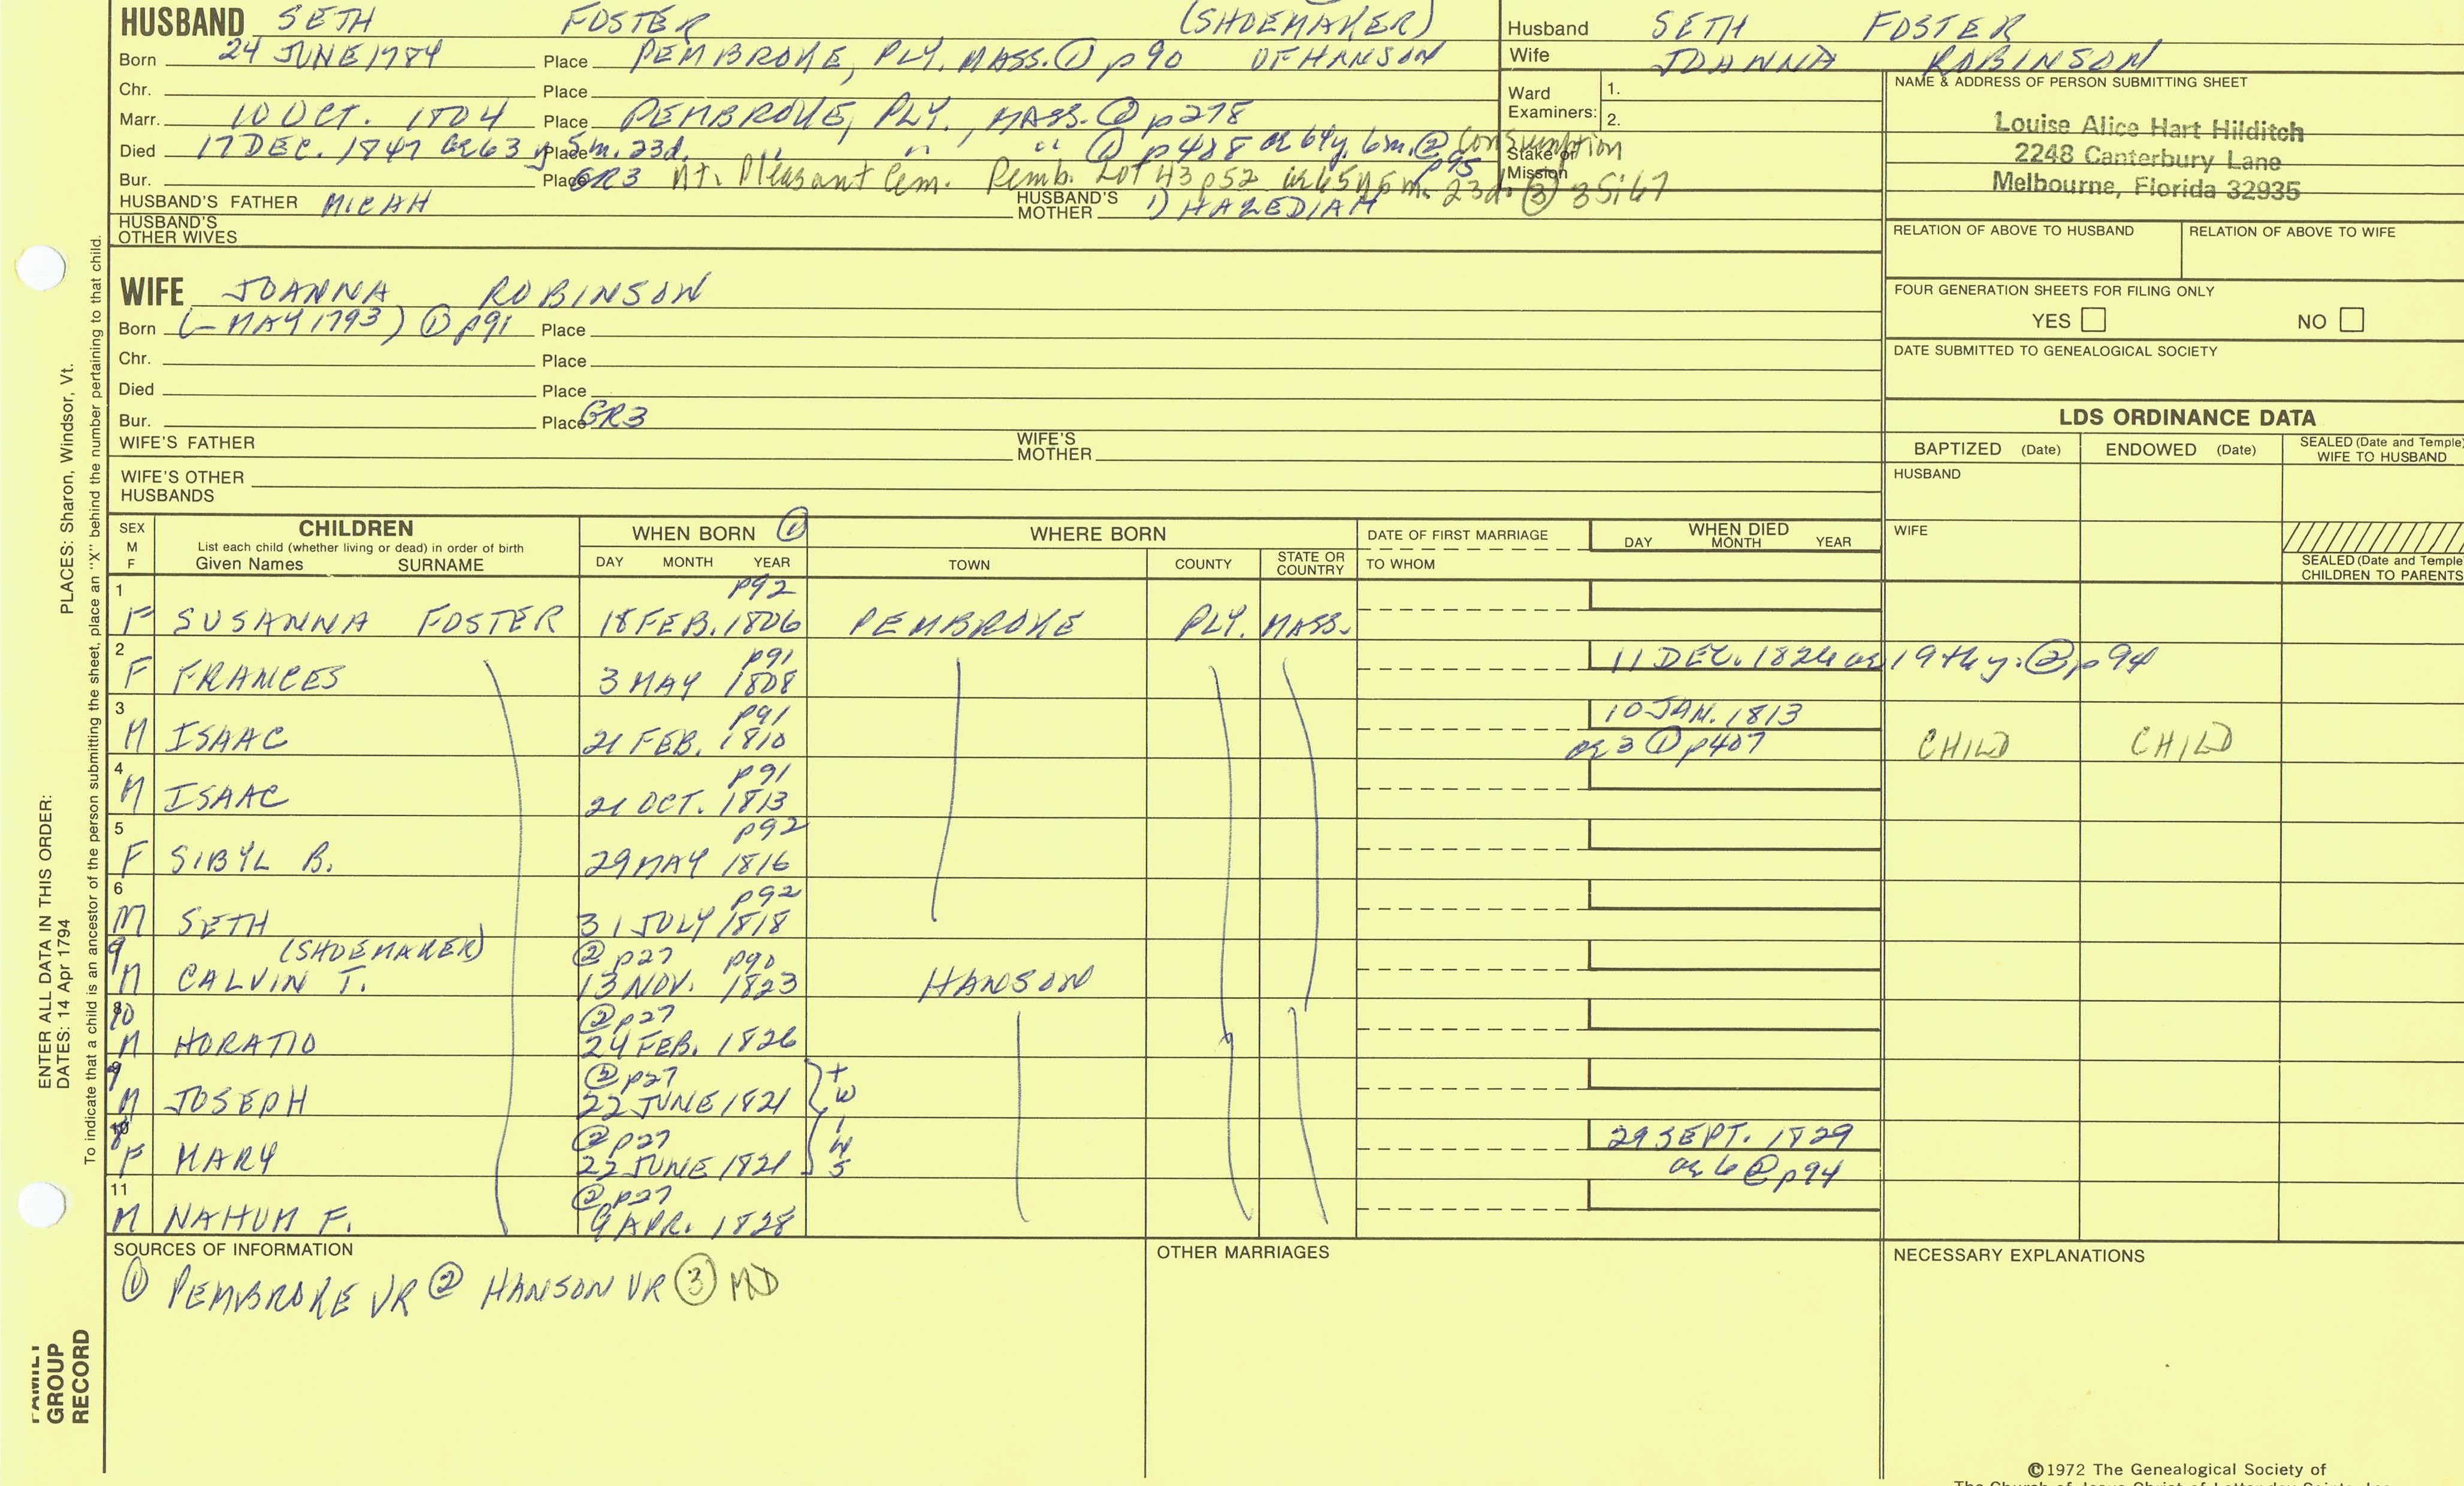 HUSBAND SETH FOSTER (SHOEMAKER)
Born 24 JUNE 1784 Place PEMBROKE, PLY. MASS. ① p90 OF HANSON
Chr. Place
Marr. 10 OCT. 1804 Place PEMBROKE, PLY., MASS. ① p278
Died 17 DEC. 1847 ae 63 y 5m. 23d. Place " " " ① p408 ae 64y. 6m. ② Consumption p95
Bur. Place GR3 Mt. Pleasant Cem. Pemb. Lot 43 p52 ae 65y 5m. 23d. ③ 35:67
HUSBAND'S FATHER MICAH HUSBAND'S MOTHER 1)
HUSBAND'S OTHER WIVES
Husband SETH FOSTER
Wife JOANNA ROBINSON
Ward Examiners: 1.
2.
Stake or Mission
NAME & ADDRESS OF PERSON SUBMITTING SHEET
Louise Alice Hart Hilditch
2248 Canterbury Lane
Melbourne, Florida 32935
RELATION OF ABOVE TO HUSBAND RELATION OF ABOVE TO WIFE
FOUR GENERATION SHEETS FOR FILING ONLY
YES NO
DATE SUBMITTED TO GENEALOGICAL SOCIETY
WIFE JOANNA ROBINSON
Born (- MAY 1793) ① p91 Place
Chr. Place
Died Place
Bur. Place GR3
WIFE'S FATHER WIFE'S MOTHER
WIFE'S OTHER HUSBANDS
LDS ORDINANCE DATA
BAPTIZED (Date) ENDOWED (Date) SEALED (Date and Temple) WIFE TO HUSBAND
HUSBAND
WIFE
SEALED (Date and Temple) CHILDREN TO PARENTS
SEX M F CHILDREN List each child (whether living or dead) in order of birth Given Names SURNAME
WHEN BORN ① DAY MONTH YEAR
WHERE BORN TOWN COUNTY STATE OR COUNTRY
DATE OF FIRST MARRIAGE TO WHOM
WHEN DIED DAY MONTH YEAR
1 p92
F SUSANNA FOSTER 18 FEB. 1806 PEMBROKE PLY. MASS.
2 p91
F FRANCES 3 MAY 1808 11 DEC. 1826 ae 19th y. ② p94
3 p91 10 JAN. 1813
M ISAAC 21 FEB. 1810 ae 3 ① p407 CHILD CHILD
4 p91
M ISAAC 21 OCT. 1813
5 p92
F SIBYL B. 29 MAY 1816
6 p92
M SETH 31 JULY 1818
9 (SHOEMAKER) ② p27 p90
M CALVIN T. 13 NOV. 1823 HANSON
10 ② p27
M HORATIO 24 FEB. 1826
② p27
M JOSEPH 22 JUNE 1821 twins
8 ② p27 29 SEPT. 1829
F MARY 22 JUNE 1821 ae 6 ② p94
11 ② p27
M NAHUM F. 9 APR. 1828
SOURCES OF INFORMATION
① PEMBROKE VR ② HANSON VR ③ MD
OTHER MARRIAGES
NECESSARY EXPLANATIONS
©1972 The Genealogical Society of
ENTER ALL DATA IN THIS ORDER:
DATES: 14 Apr 1794
PLACES: Sharon, Windsor, Vt.
To indicate that a child is an ancestor of the person submitting the sheet, place an "X" behind the number pertaining to that child.
FAMILY
GROUP
RECORD